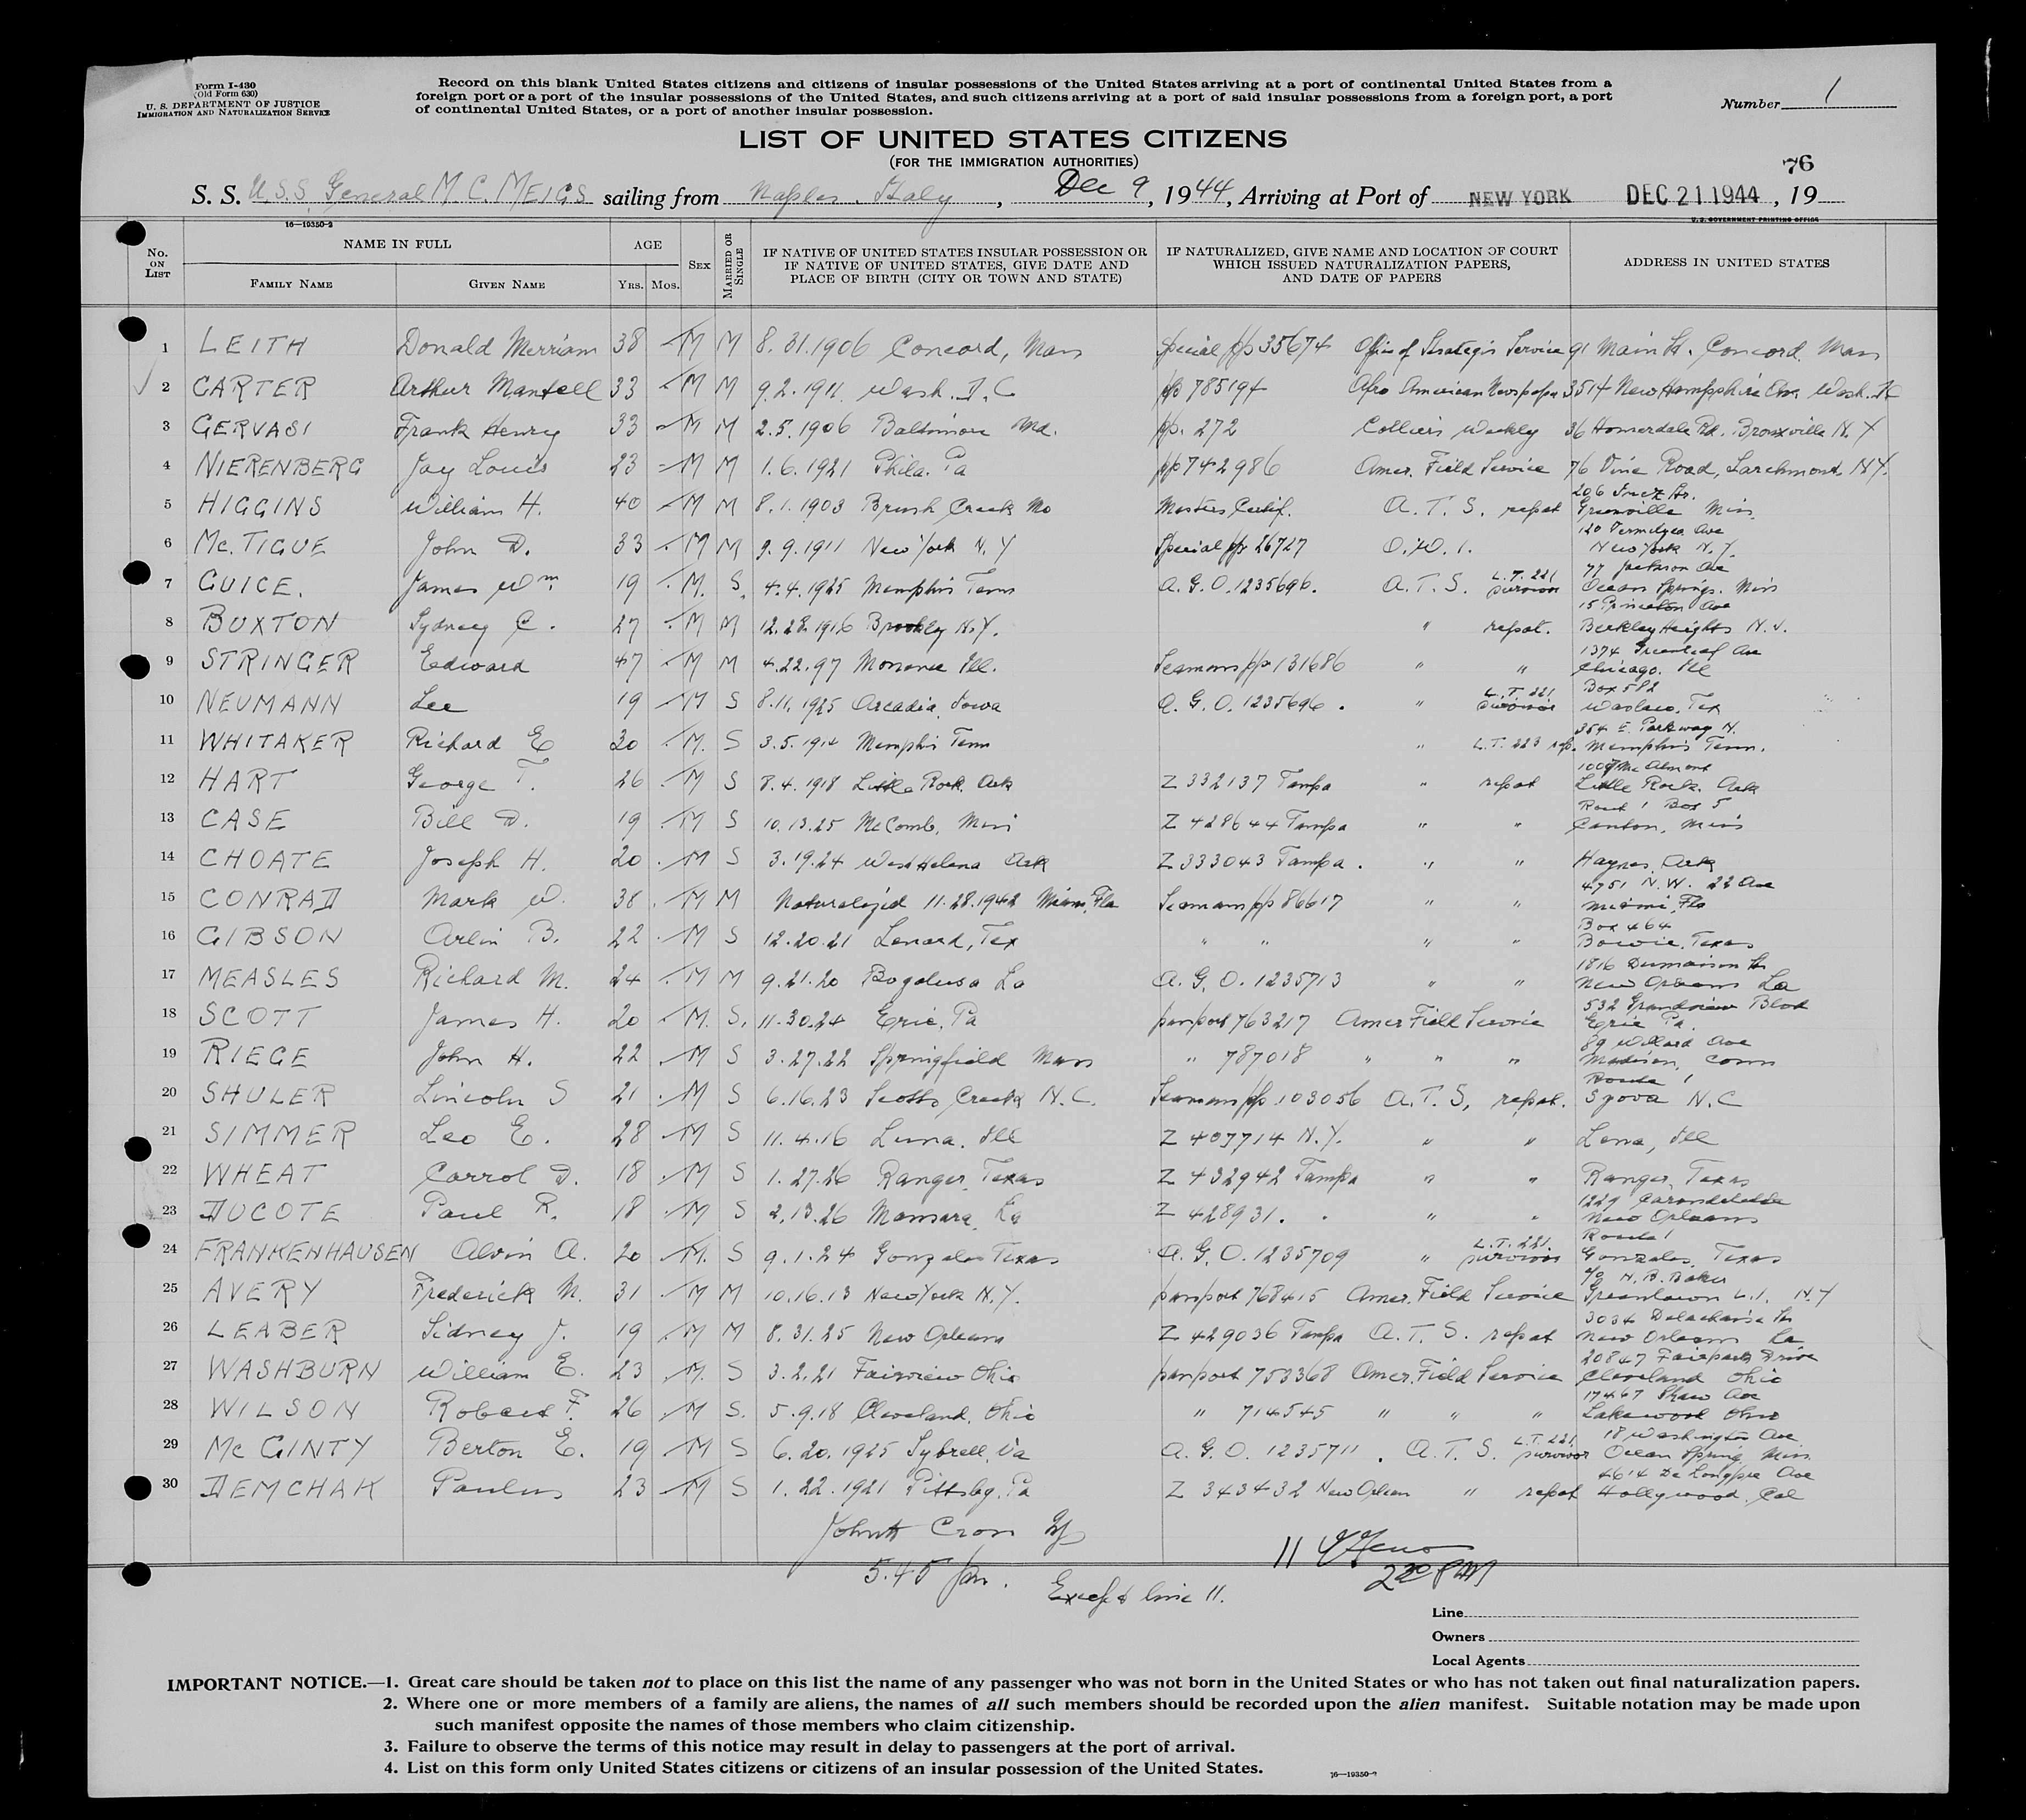 Form I-430
(Old Form 630)
U. S. DEPARTMENT OF JUSTICE
IMMIGRATION AND NATURALIZATION SERVICE
Record on this blank United States citizens and citizens of insular possessions of the United States arriving at a port of continental United States from a
foreign port or a port of the insular possessions of the United States, and such citizens arriving at a port of said insular possessions from a foreign port, a port
of continental United States, or a port of another insular possession.
Number 1
LIST OF UNITED STATES CITIZENS
(FOR THE IMMIGRATION AUTHORITIES)
76
S. S. U.S.S. General M. C. MEIGS sailing from Naples. Italy, Dec 9, 1944, Arriving at Port of NEW YORK DEC 21 1944, 19
16—19350-2
U. S. GOVERNMENT PRINTING OFFICE
No. ON LIST
NAME IN FULL
FAMILY NAME
GIVEN NAME
AGE
YRS. MOS.
SEX
MARRIED OR SINGLE
IF NATIVE OF UNITED STATES INSULAR POSSESSION OR
IF NATIVE OF UNITED STATES, GIVE DATE AND
PLACE OF BIRTH (CITY OR TOWN AND STATE)
IF NATURALIZED, GIVE NAME AND LOCATION OF COURT
WHICH ISSUED NATURALIZATION PAPERS,
AND DATE OF PAPERS
ADDRESS IN UNITED STATES
1 LEITH Donald Merriam 38 M M 8. 31. 1906 Concord, Mass Special pp 35674 Office of Strategic Service 91 Main St. Concord. Mass
2 CARTER Arthur Mantell 33 M M 9. 2. 1911. Wash. D. C pp 785194 Afro American Newspaper 3514 New Hampshire Ave. Wash. DC
3 GERVASI Frank Henry 33 M M 2. 5. 1906 Baltimore Md. pp. 272 Colliers Weekly 36 Homerdale Rd. Bronxville N. Y
4 NIERENBERG Jay Louis 23 M M 1. 6. 1921 Phila. Pa pp 742986 Amer. Field Service 76 Vine Road, Larchmont. N.Y.
5 HIGGINS William H. 40 M M 8. 1. 1903 Brush Creek Mo Masters Certif. A. T. S. repat 206 St. Greenville Miss.
6 Mc. TIGUE John D. 33 M M 9. 9. 1911 New York N. Y Special pp 26727 O. W. I. 120 Vermilyea Ave New York N. Y.
7 GUICE. James Wm 19 M. S. 4. 4. 1925 Memphis Tenn A. G. O. 1235696. A. T. S. L. T. 221 survivor 77 Jackson Ave Ocean Springs. Miss
8 BUXTON Sydney C. 27 M M 12. 28. 1916 Brookly N.Y. " repat. 15 Princeton Ave Berkley Heights N. J.
9 STRINGER Edward 47 M M 4. 22. 97 Momence Ill. Seamans pp 131686 " " 1374 Greenleaf Ave Chicago. Ill
10 NEUMANN Lee 19 M S 8. 11. 1925 Arcadia, Iowa A. G. O. 1235696. " L. T. 221 survivor Box 582 Weslaco, Tex
11 WHITAKER Richard E 30 M. S 3. 5. 1914 Memphis Tenn " L. T. 223 rep. 354 E. Parkway N. Memphis Tenn.
12 HART George T. 26 M S 8. 4. 1918 Little Rock. Ark Z 332137 Tampa " repat 1007 Mc Almont Little Rock. Ark
13 CASE Bill D. 19 M S 10. 13. 25 McComb, Miss Z 428644 Tampa " " Rout 1 Box 5 Canton, Miss
14 CHOATE Joseph H. 20 M S 3. 19. 24 West Helena Ark Z 333043 Tampa. " " Haynes, Ark
15 CONRAD Mark W. 38 M M Naturalized 11. 28. 1942 Miami, Fla Seamans pp 86617 " " 4751 N. W. 22 Ave Miami, Fla
16 GIBSON Arlin B. 22 M S 12. 20. 21 Lenard, Tex " " " " Box 464 Bowie, Texas
17 MEASLES Richard M. 24 M M 9. 21. 20 Bogalusa La A. G. O. 1235713 " " 1816 St New Orleans La
18 SCOTT James H. 20 M. S. 11. 30. 24 Erie, Pa passport 763217 Amer Field Service 532 Grandview Blvd Erie Pa.
19 RIEGE John H. 22 M S 3. 27. 22 Springfield Mass " 787018 " " " 89 Willard Ave Madison, Conn
20 SHULER Lincoln S 21 M S 6. 16. 23 Scotts Creek N. C. Seamans pp. 103056 A. T. S. repat. Route 1 Syova N. C
21 SIMMER Leo E. 28 M S 11. 4. 16 Luna. Ill Z 407714 N. Y. " " Lena, Ill
22 WHEAT Carrol D. 18 M S 1. 27. 26 Ranger. Texas Z 432942 Tampa " " Ranger, Texas
23 DUCOTE Paul R. 18 M S 2. 13. 26 Mansura, La Z 428931. " " " 1229 New Orleans
24 FRANKENHAUSEN Alvin A. 20 M. S 9. 1. 24 Gonzales Texas A. G. O. 1235709 " L. T. 221 survivor Route 1 Gonzales, Texas
25 AVERY Frederick M. 31 M M 10. 16. 13 New York N. Y. passport 768415 Amer. Field Service c/o H. B. Baker Greenlawn L. I. N. Y
26 LEABER Sidney J. 19 M M 8. 31. 25 New Orleans Z 429036 Tampa A. T. S. repat 3034 Delachaise St New Orleans La
27 WASHBURN William E. 23 M. S 3. 2. 21 Fairview Ohio passport 753368 Amer. Field Service 20847 Fairpark Drive Cleveland Ohio
28 WILSON Robert F. 26 M S. 5. 9. 18 Cleveland, Ohio " 714545 " " " 17467 Shaw Ave Lakewood Ohio
29 Mc GINTY Berton E. 19 M S 6. 20. 1925 Sybrell, Va A. G. O. 1235711. A. T. S. L. T. 221 survivor 18 Washington Ave Ocean Spring Miss
30 DEMCHAK Paulus 23 M S 1. 22. 1921 Pittsbg. Pa Z 343432 New Orlean " repat 4614 De Longpre Ave Hollywood, Cal
John Cron
5.45 pm.
Except line 11.
11
2 30 PM
Line
Owners
Local Agents
IMPORTANT NOTICE.—1. Great care should be taken not to place on this list the name of any passenger who was not born in the United States or who has not taken out final naturalization papers.
2. Where one or more members of a family are aliens, the names of all such members should be recorded upon the alien manifest. Suitable notation may be made upon
such manifest opposite the names of those members who claim citizenship.
3. Failure to observe the terms of this notice may result in delay to passengers at the port of arrival.
4. List on this form only United States citizens or citizens of an insular possession of the United States.
16—19350-2